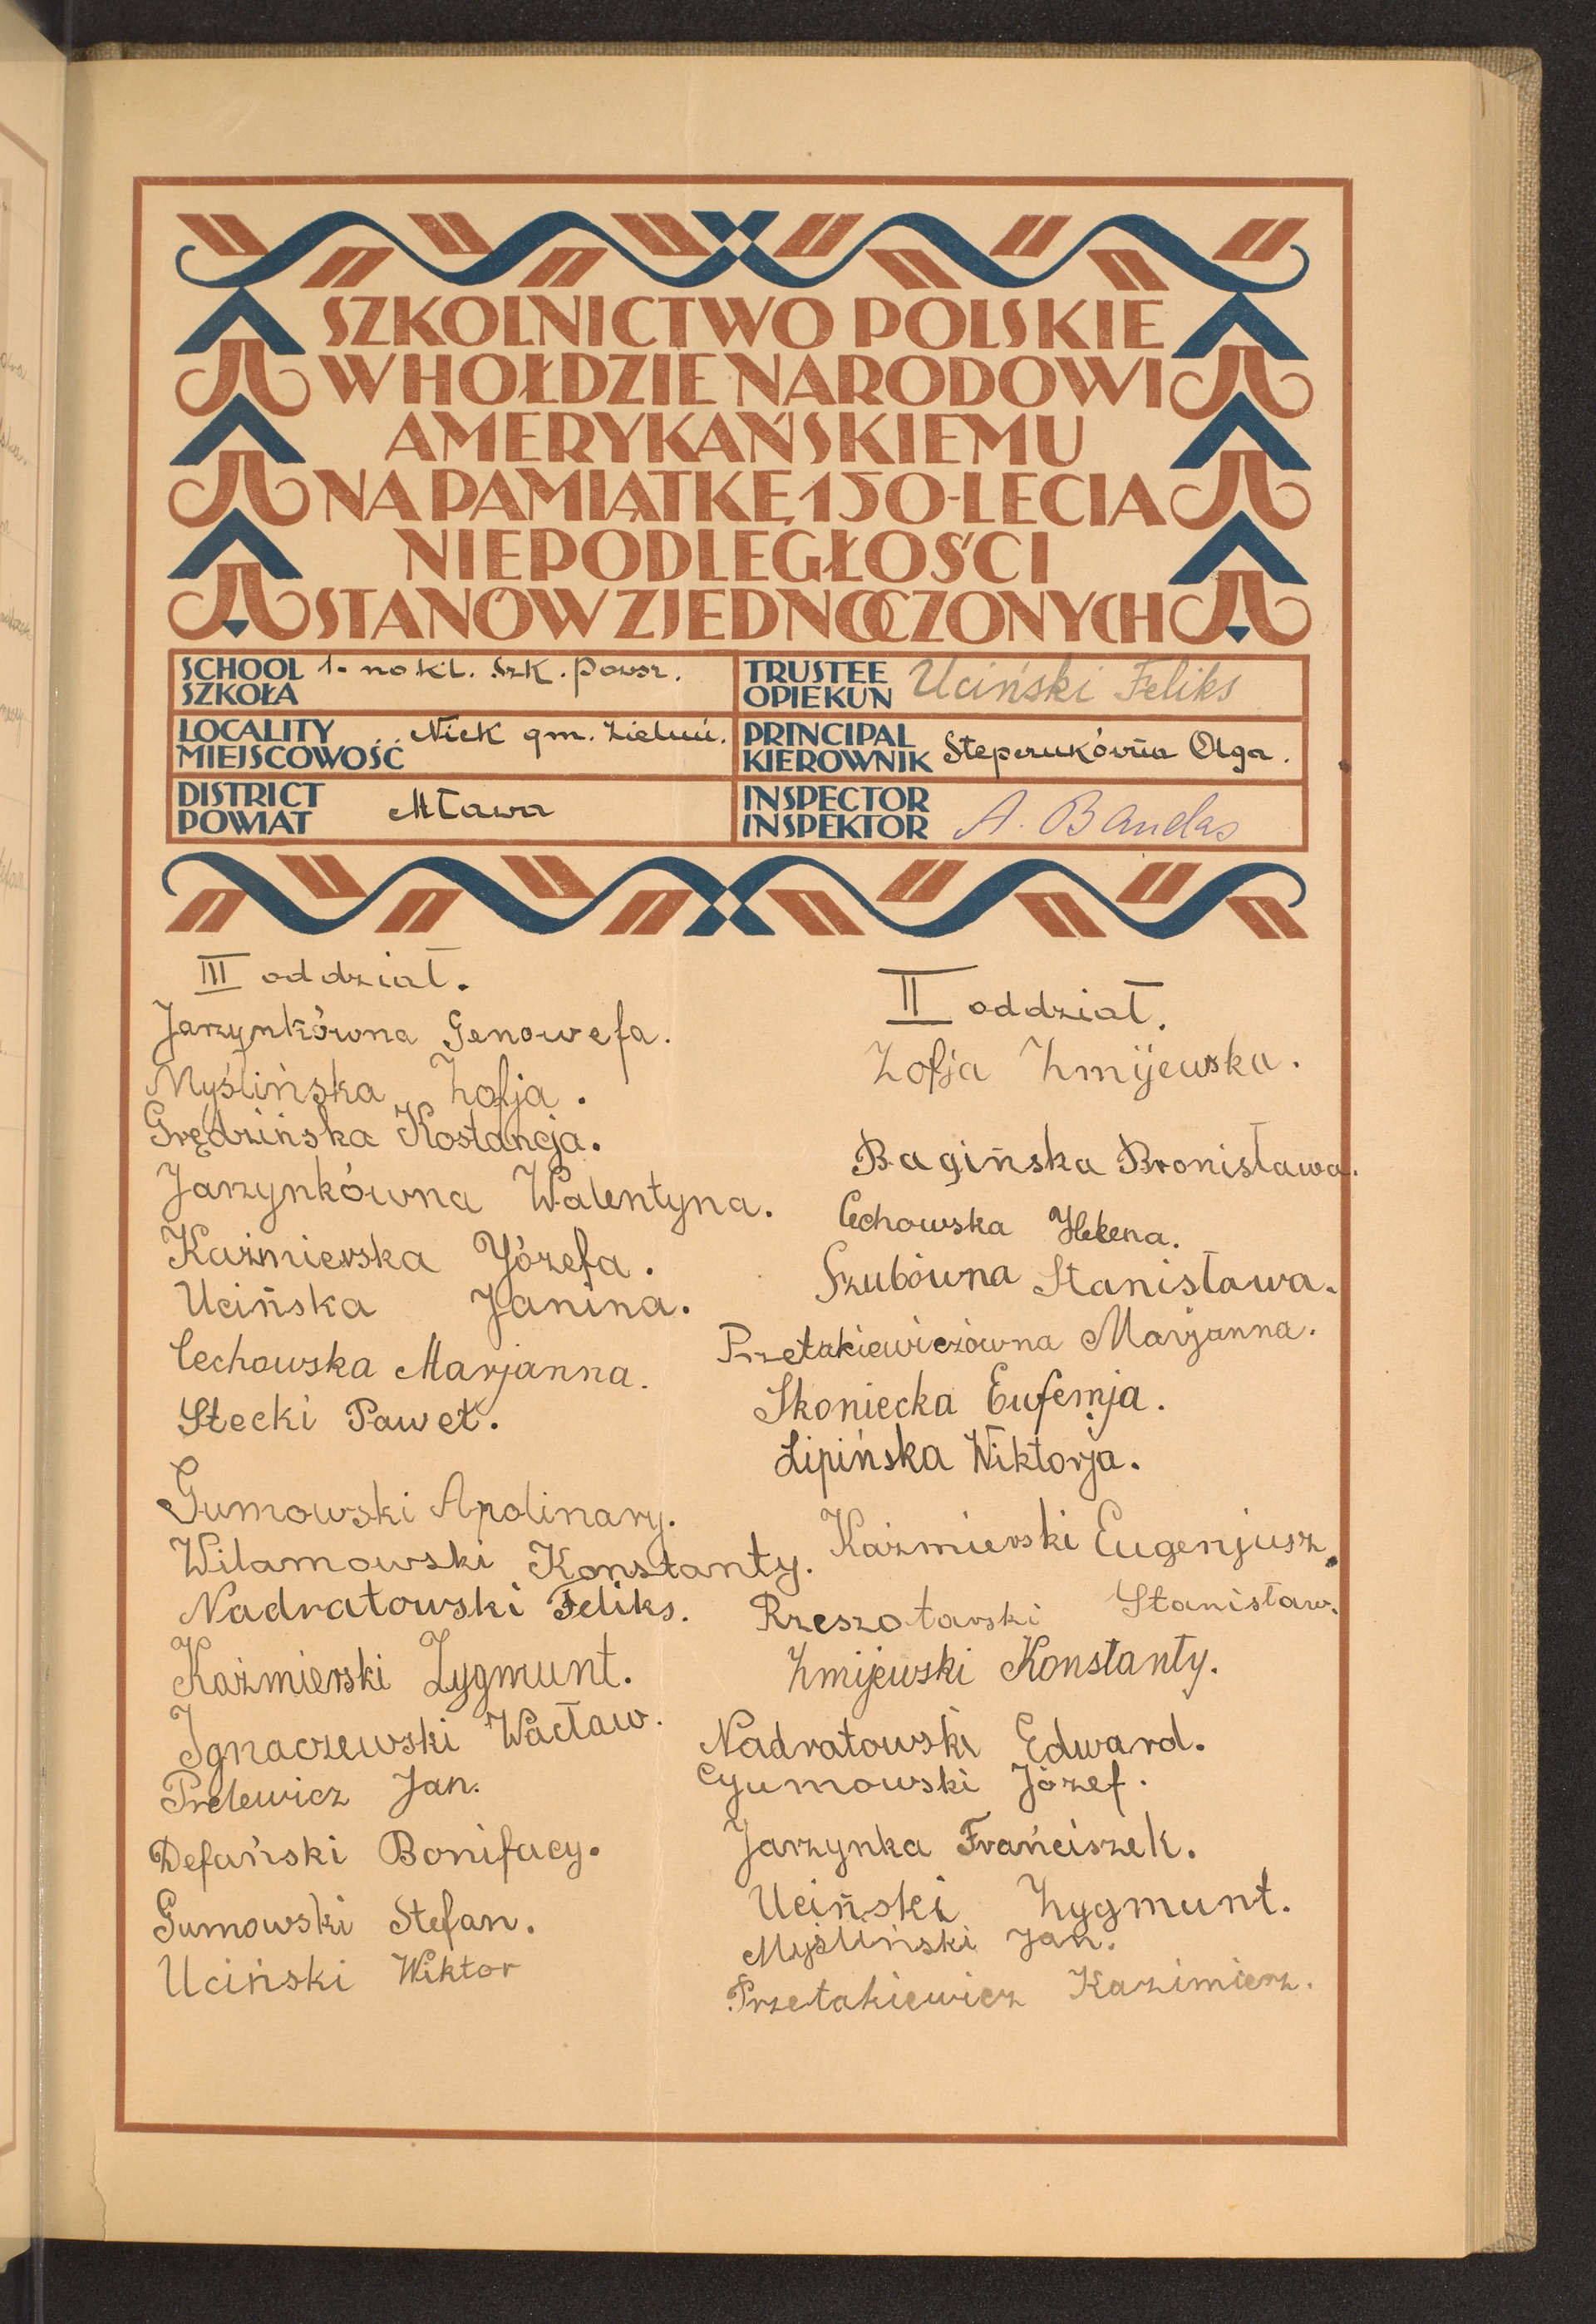 SZKOLNICTWO POLSKIE
W HOŁDZIE NARODOWI
AMERYKAŃSKIEMU
NA PAMIĄTKĘ 150-LECIA
NIEPODLEGŁOŚCI
STANÓW ZJEDNOCZONYCH
SCHOOL
SZKOŁA
1-no kl. Szk. Powsz.
TRUSTEE
OPIEKUN
Uciński Feliks
LOCALITY
MIEJSCOWOŚĆ
Niek gm. Zieluń.
PRINCIPAL
KIEROWNIK
Stepczukówna Olga.
DISTRICT
POWIAT
Mława
INSPECTOR
INSPEKTOR
A. Bandas
III oddział.
Jarzynkówna Genowefa.
Myślińska Zofja.
Grędzińska Kostancja.
Jarzynkówna Walentyna.
Kaźmierska Józefa.
Ucińska Janina.
Cechowska Marjanna.
Stecki Paweł.
Gumowski Apolinary.
Wilamowski Konstanty.
Nadratowski Feliks.
Kaźmierski Zygmunt.
Ignaczewski Wacław.
Prelewicz Jan.
Defański Bonifacy.
Gumowski Stefan.
Uciński Wiktor
II oddział.
Zofja Zmijewska.
Bagińska Bronisława.
Cechowska Helena.
Szubówna Stanisława.
Przetakiewiczówna Marjanna.
Skoniecka Eufemja.
Lipińska Wiktorja.
Kaźmierski Eugenjusz.
Rzeszotarski Stanisław.
Zmijewski Konstanty.
Nadratowski Edward.
Gumowski Józef.
Jarzynka Frańciszek.
Uciński Zygmunt.
Myśliński Jan.
Przetakiewicz Kazimierz.